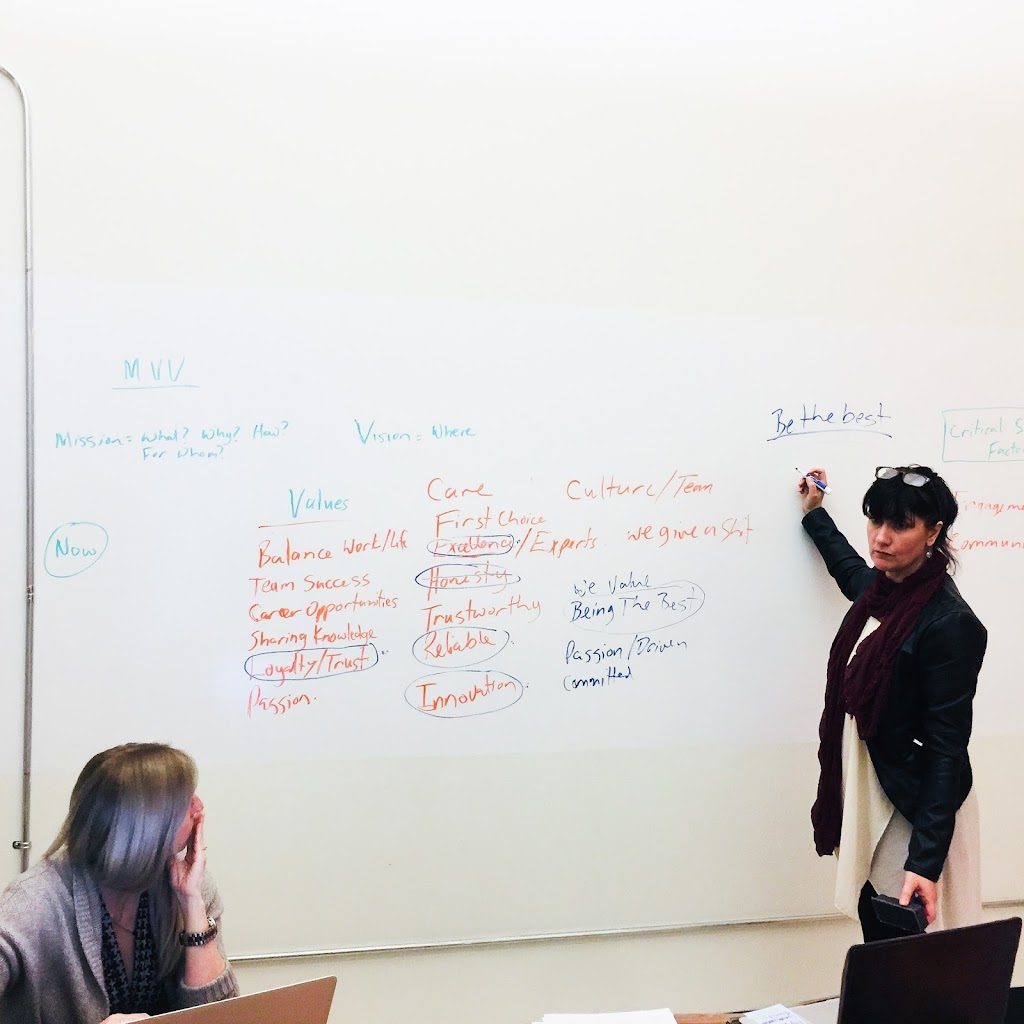 MVV
Mission: What? Why? How?
For Whom?
Vision: Where
Now
Values
Balance Work/Life
Team Success
Career Opportunities
Sharing Knowledge
Loyalty/Trust
Passion.
Care
First Choice
Excellence/Experts
Honesty
Trustworthy
Reliable
Innovation
Culture/Team
we give a shit
We value
Being The Best
Passion/Driven
Committed
Be the best
Critical S
Facto
Engageme
Communi